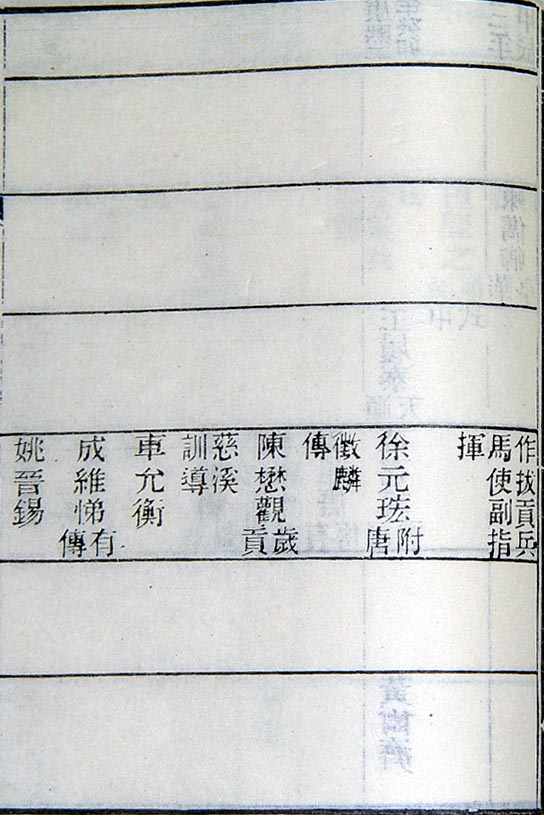 作拔貢兵
馬使副指
揮
徐元珓附
唐
徵麟
傳
陳懋觀歲
貢
慈溪
訓導
車允衡
成維悌有
傳
姚晉錫